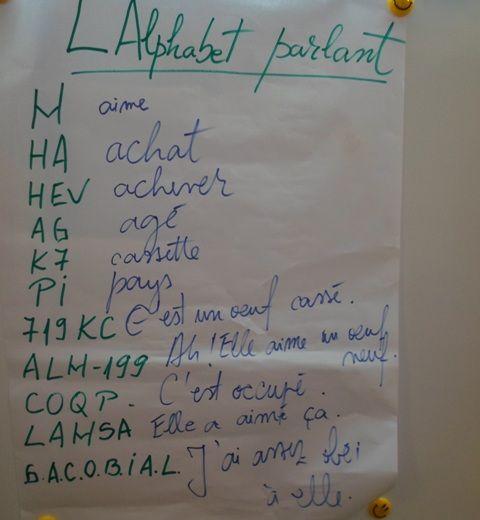 L'Alphabet parlant
M aime
HA achat
HEV achever
AG agé
K7 cassette
Pi pays
719 KC C'est un oeuf cassé.
ALM-199 Ah! Elle aime un oeuf
neuf.
COQP. C'est occupé.
LAMSA Elle a aimé ça.
G.A.C.O.B.i.A.L. J'ai assez obéi
à elle.